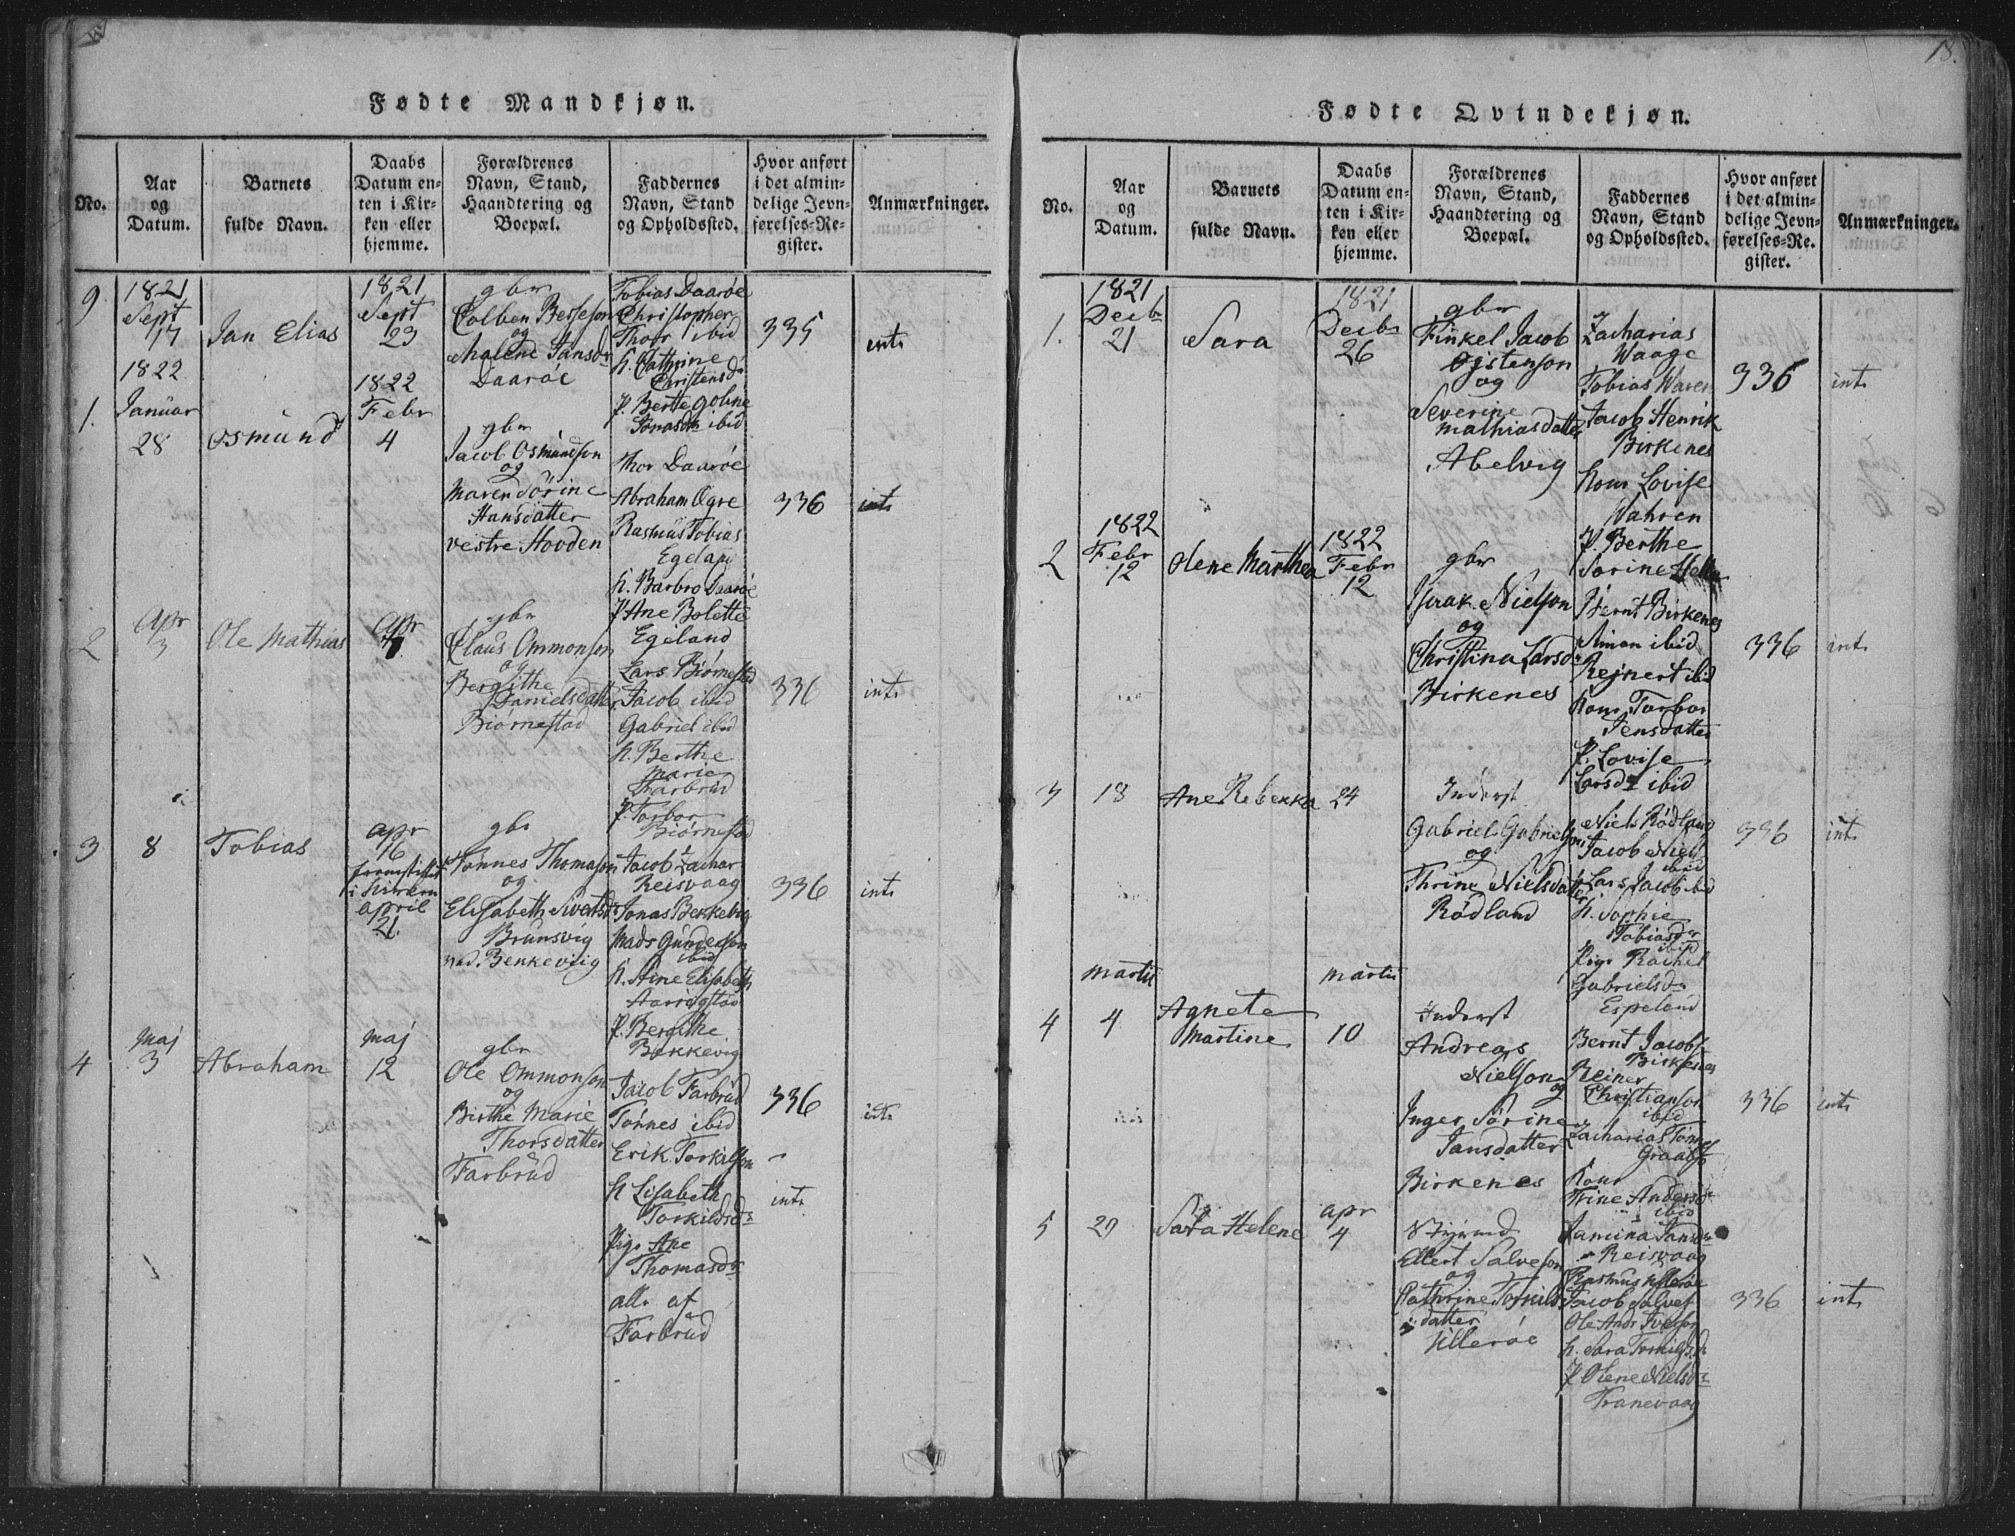 18.
Fødte Mandkjøn.
No.
Aar
og
Datum.
Barnets
fulde Navn.
Daabs
Datum en-
ten i Kir-
ken eller
hjemme.
Forældrenes
Navn, Stand,
Haandtering og
Boepæl.
Faddernes
Navn, Stand
og Opholdssted.
Hvor anført
i det almin-
delige Jevn-
førelses-Re-
gister.
Anmærkninger.
9.
1821
Sept
17
Jan Elias
1821
Sept
23
gbr
Colben Berseson
og
Malene Jansdr
Daarøe
Tobias Daarøe
Christopher
Thor ibid
K. Cathrine
Christensd
P. Berte Goline
ibid
335
int.
1.
1822
Januar
28
Osmund
1822
Febr
4
gbr
Jacob Osmundson
og
Maren Sørine
Hansdatter
vestre Hovden
Thor Daarøe
Abraham Ogre
Rasmus Tobias
Egeland
K. Barbro Daarøe
P Ane Bolette
Egeland
336
int.
2
Apr
3
Ole Mathias
Apr
gbr
Claus Ommonson
og
Bergithe
Danielsdatter
Biørnestad
Lars Biørnestad
Jacob ibid
Gabriel ibid
K. Berthe
Marie
Farbrud
P. Torbor
Biørnestad
336
int.
3
8
Tobias
apr
16
fremstillet
i Kirken
april
21.
gbr
Tønnes Thomason
og
Elisabeth Sivertsdr
Brunsvig
ved. Bekkeviig
Jacob Zachar
Reisvaag
Jonas Bekkevig
Mads Gunderson
ibid
K. Ane Elisabeth
Aarrigstad
P. Bergithe
Bekkevig
336
int.
4
Maj
3
Abraham
Maj
12
gbr
Ole Ommonson
og
Birthe Marie
Thorsdatter
Farbrud
Jacob Farbrud
Tønnes ibid
Erik Torkilsson
K Lisabeth
Torkildsd
Pige Ane
Thomasdr
alle af
Farbrud
336
int.
int.
Fødte Qvindekjøn.
No.
Aar
og
Datum.
Barnets
fulde Navn.
Daabs
Datum en-
ten i Kir-
ken eller
hjemme.
Forældrenes
Navn, Stand,
Haandtering og
Boepæl.
Faddernes
Navn, Stand
og Opholdssted.
Hvor anført
i det almin-
delige Jevn-
førelses-Re-
gister.
Anmærkninger.
1.
1821
Decbr
21
Sara
1821
Decbr
26
gbr
Finkel Jacob
Ojstenson
og
Severine
Mathiasdatter
Abelvig
Zacharias
Waage
Tobias Waren
Jacob Henrik
Birkenes
Kone Lovise
Wahren
P. Berthe
Sorine Helle
336
int.
2
1822
Febr
12
Olene Marthea
1822
Febr
12
gbr
Israk Nielson
og
Christina Larsdr
Birkenes
Bernt Birkenes
Simon ibid
Rejnert ibid
Kone Torbor
Jensdatter
P. Lovise
Larsdr ibid
336
int.
3
18
Ane Rebekka
24
Inderst
Gabriel Gabrielson
og
Thrine Nielsdatter
Rødland
Niels Rødland
Jacob Niels
ibid
Lars Jacob ibid
K. Sophie
Tobiasdr
ibid
Pige Rachel
Gabrielsdr
Espeland
336
int.
4
Martii
4
Agnete
Martine
Martii
10
Inderst
Andreas
Nielson
og
Inger Sørine
Jansdatter
Birkenes
Bernt Jacobs
Birkenes
Reiner
Christianson
ibid
Zacharias Tønnes
Kone
Trine Andersdr
ibid
Jansdr
Reisvaag
336
int.
5
29
Sara Helene
apr
4
Ellert Salveson
og
Cathrine Torkils
datter
Ullerøe
Rasmus Ullerøe
Jacob Salves
Ole Andr Iverson
K. Sara Torkilsd
P Olene Nielsdr
Tranevaag
336
int.